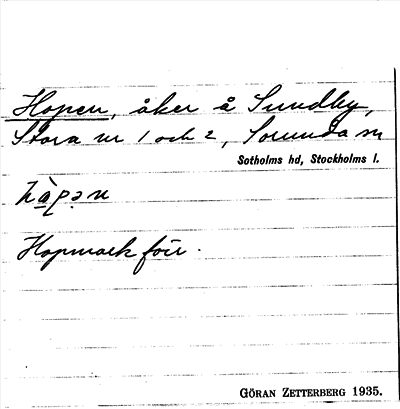 Hopen, åker å Sundby,
Stora nr 1 och 2, Sorunda sn
Sotholms hd, Stockholms l.
Hopmark förr.
GÖRAN ZETTERBERG 1935.